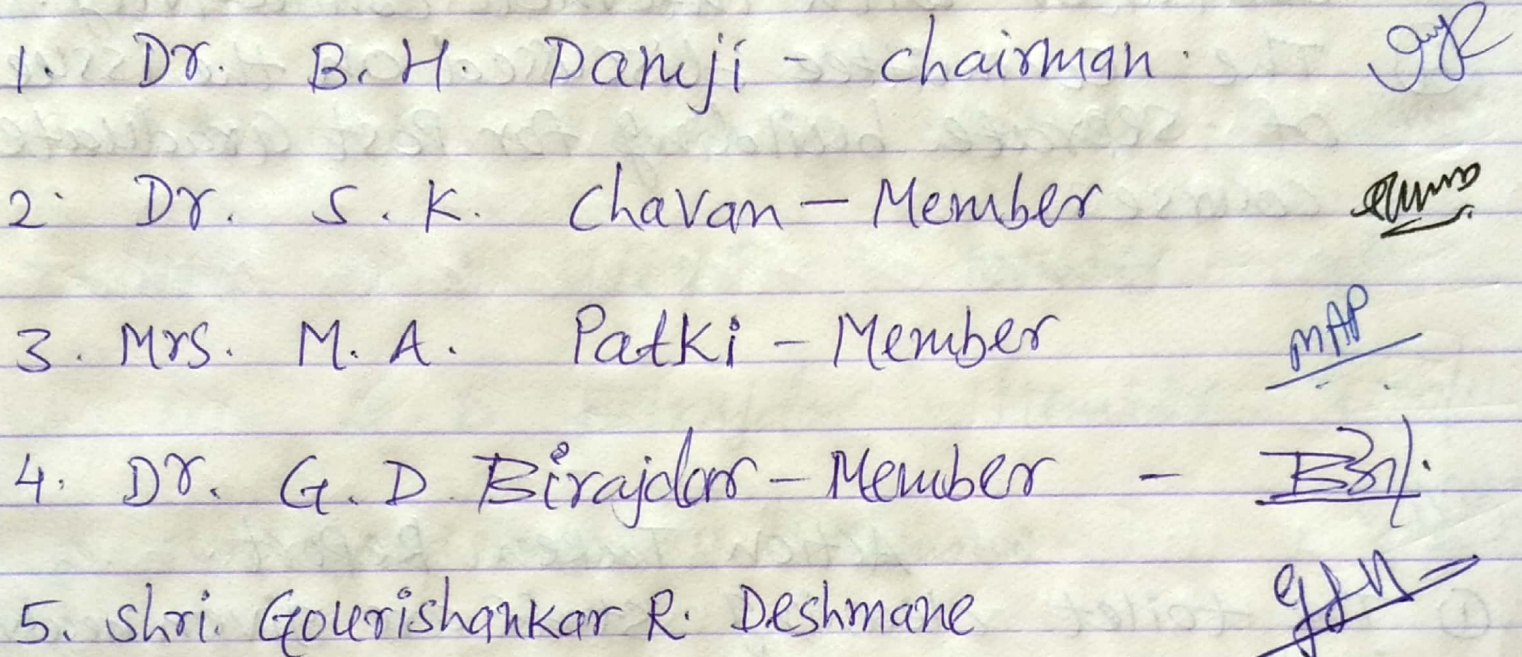 1. Dr. B. H. Damji - chairman.
2. Dr. S. K. Chavan - Member
3. Mrs. M. A. Patki - Member MAP
4. Dr. G. D. Birajdar - Member -
5. Shri. Gourishankar R. Deshmane